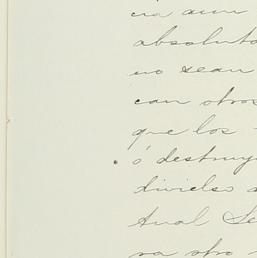 cia aun
absoluta
no sean
can otros
que los
ó destruy
Anal Se
ra otro